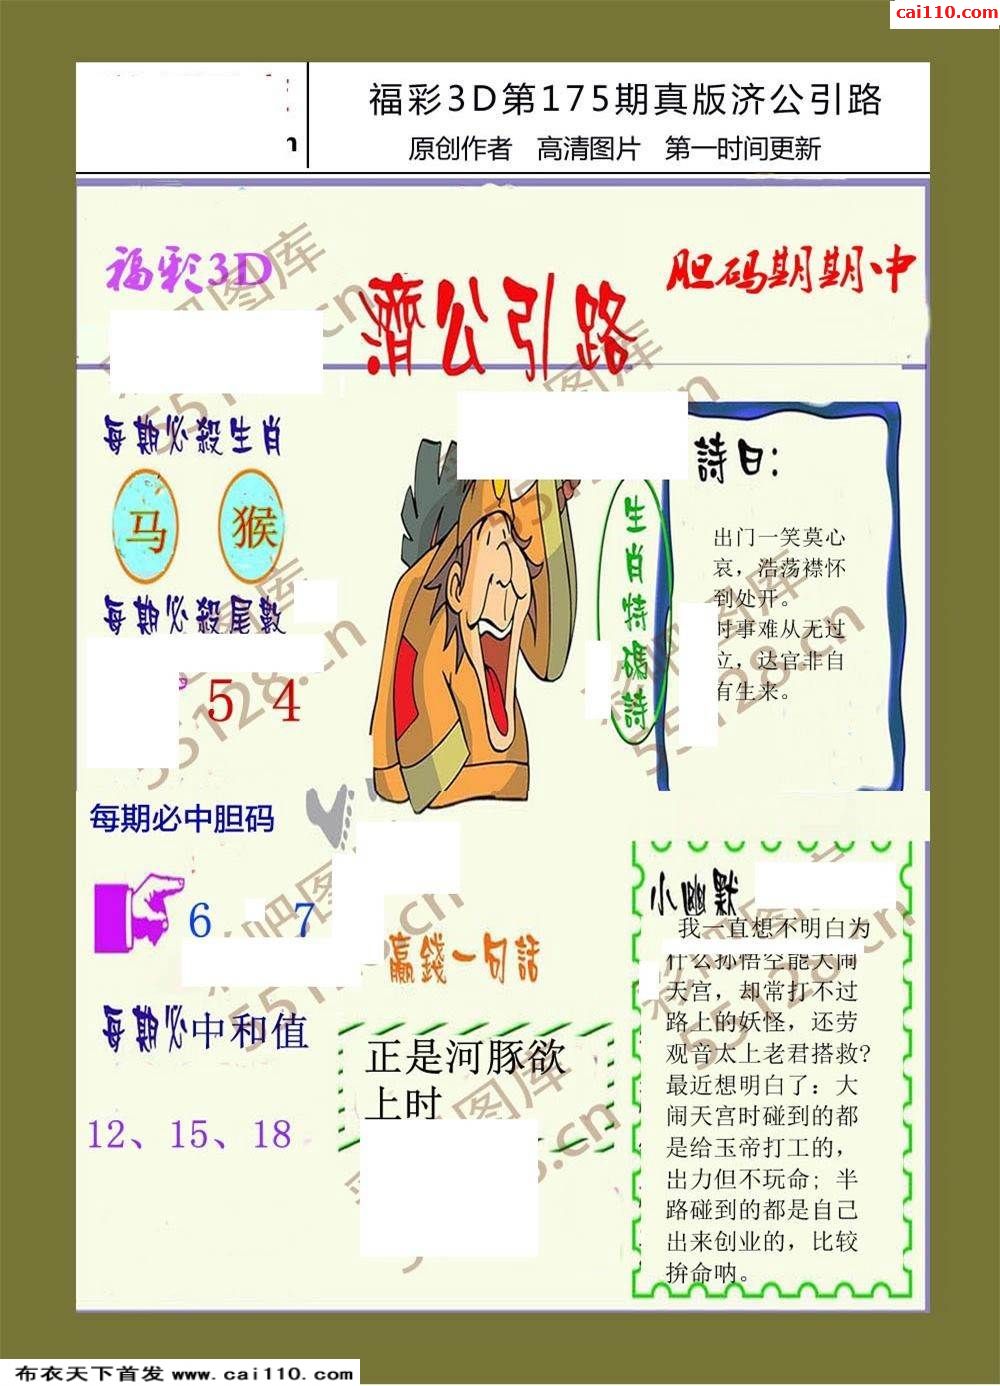 cai110.com
福彩3D第175期真版济公引路
原创作者 高清图片 第一时间更新
福彩3D
濟公引路
胆码期期中
每期必殺生肖
马 猴
每期必殺尾數
5 4
每期必中胆码
6 7
每期必中和值
12、15、18
生肖特碼詩
詩曰:
出门一笑莫心
哀，浩荡襟怀
到处开。
时事难从无过
立，达官非自
有生来。
赢錢一句話
正是河豚欲
上时
小幽默
我一直想不明白为
什么孙悟空能大闹
天宫，却常打不过
路上的妖怪，还劳
观音太上老君搭救?
最近想明白了：大
闹天宫时碰到的都
是给玉帝打工的，
出力但不玩命；半
路碰到的都是自己
出来创业的，比较
拚命呐。
彩吧图库
55128.cn
布衣天下首发 www.cai110.com